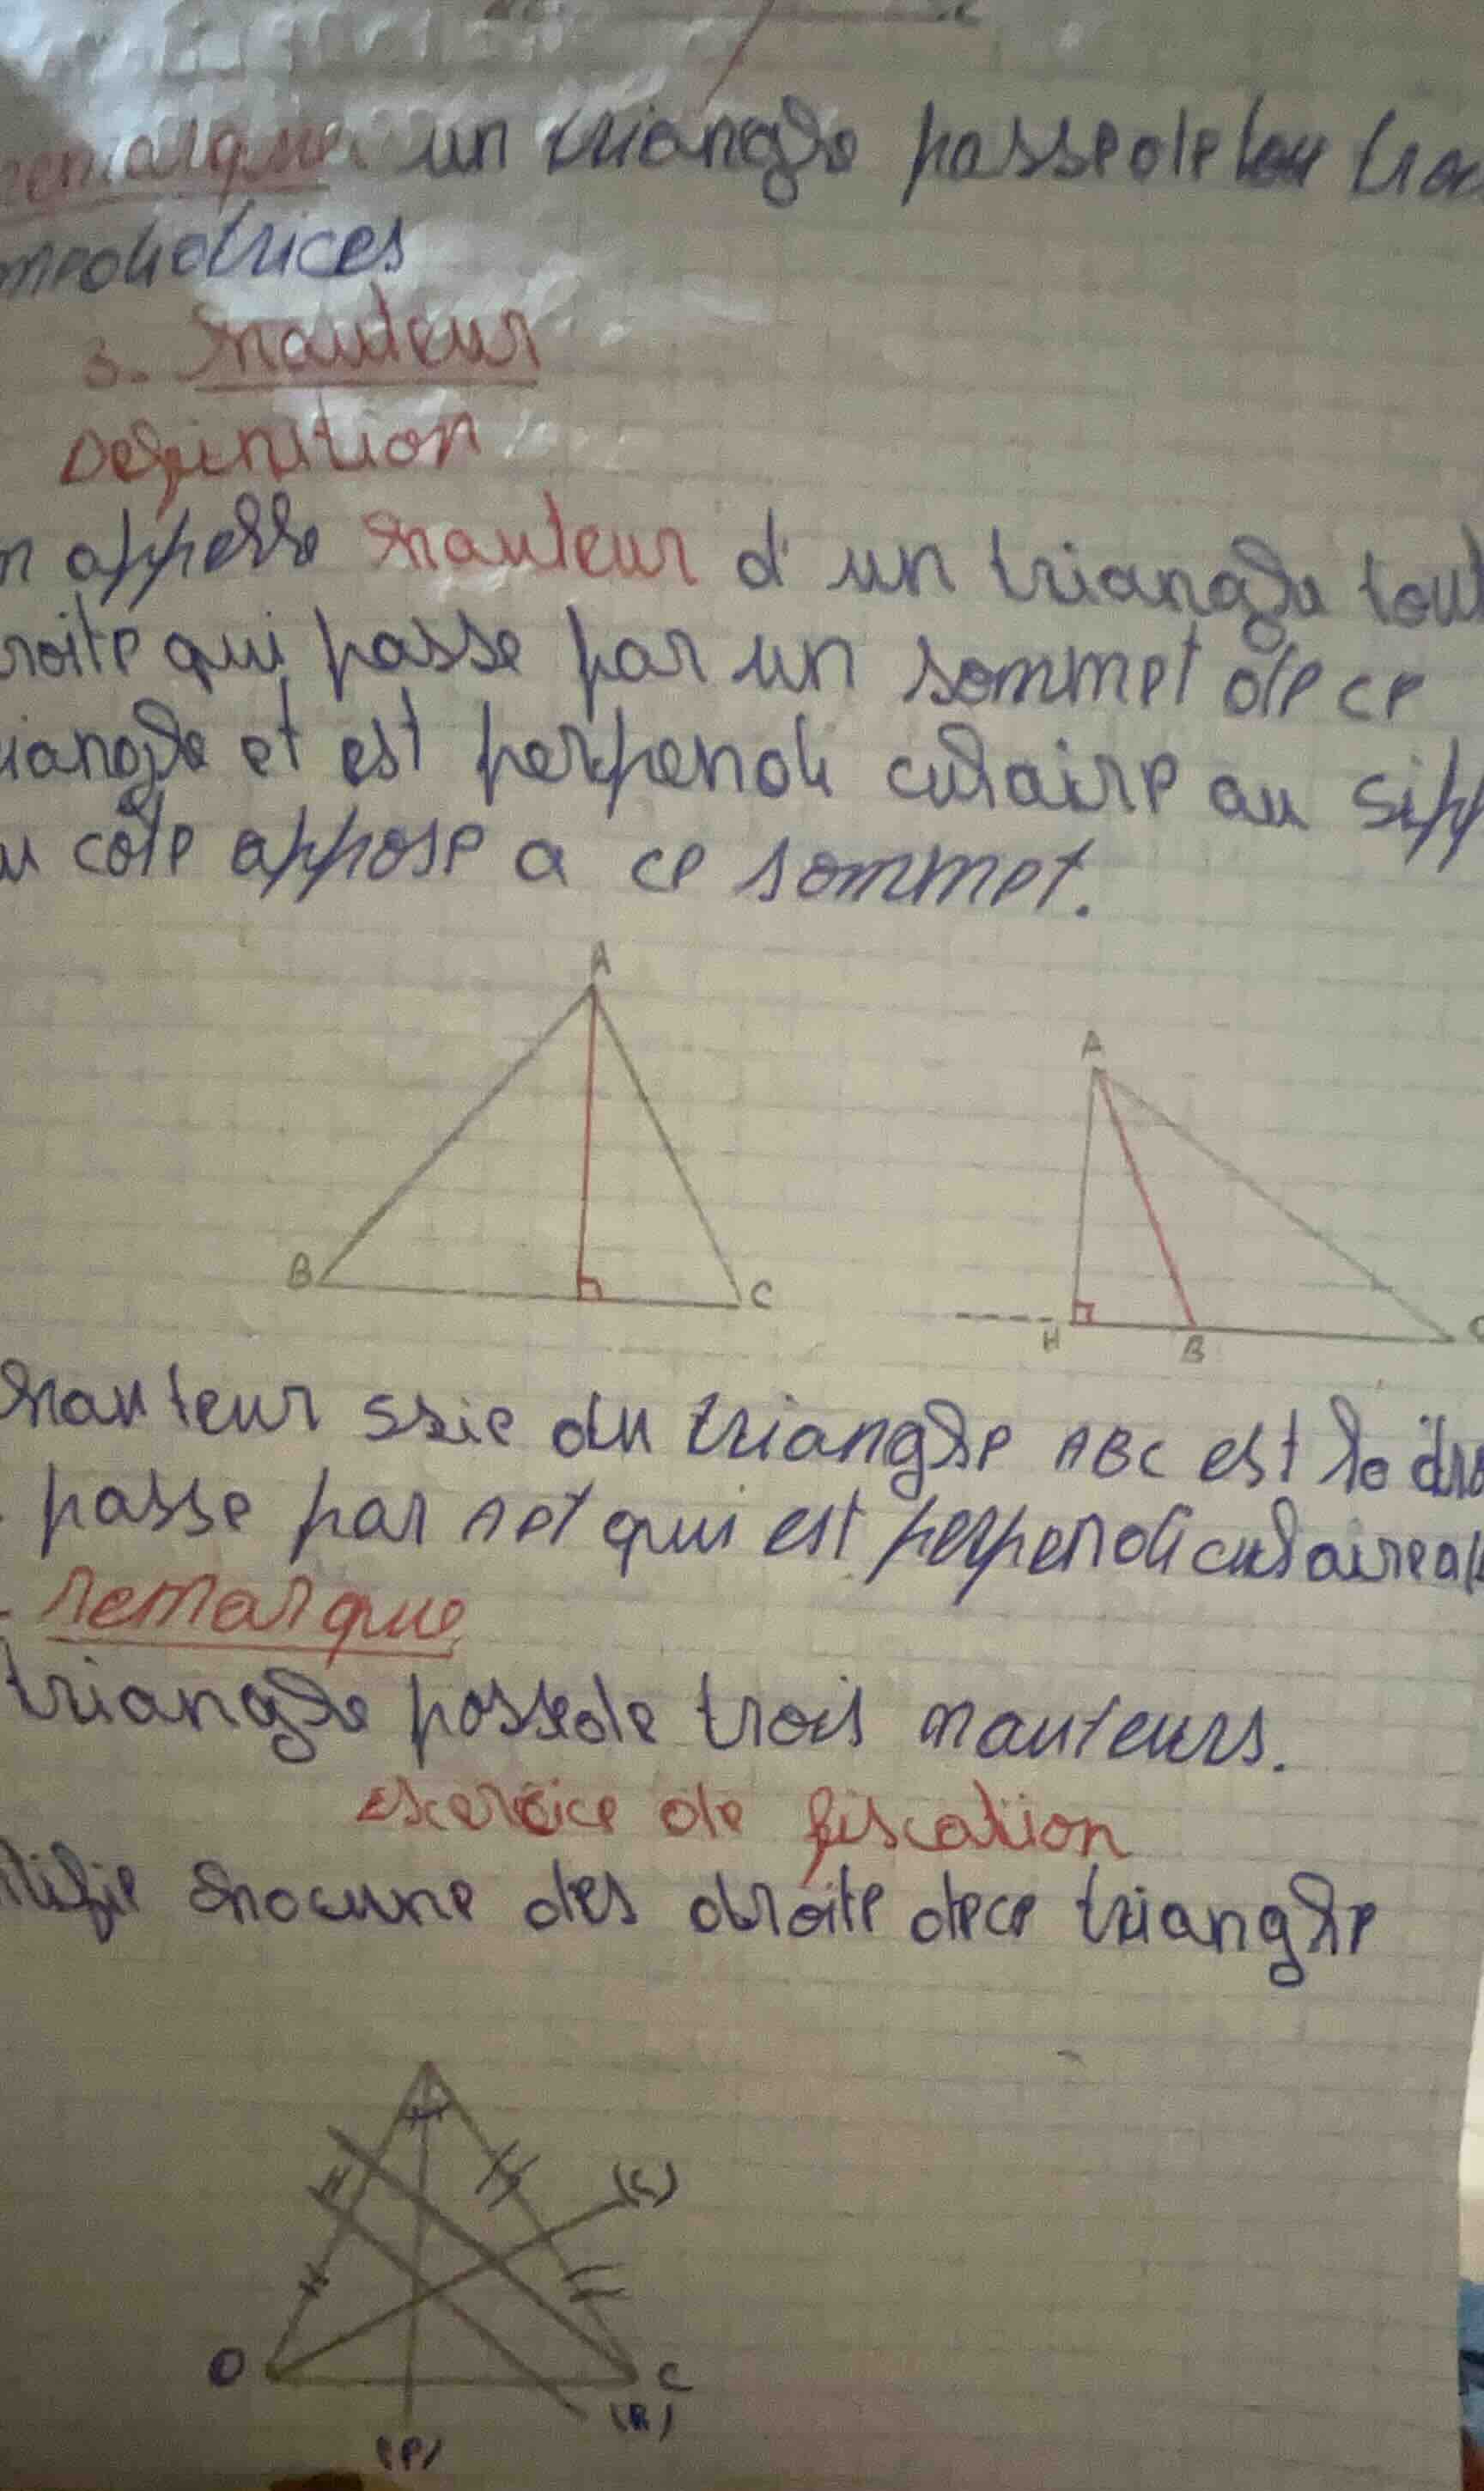 remarque un triangle possede
mediatrices
3. hauteur
Definition
appelle hauteur d'un triangle tout
roite qui passe par un sommet de ce
iangle et est perpendi culaire au sipp
u côte apposé a ce sommet.
A
A
B
C
H
B
hauteur ssie du triangle ABC est la dro
passe par A et qui est perpendiculaire a
remarque
triangle possede trois hauteurs.
Exercice de fiscation
tifie chacune des droite dece triangle
O
C
(P)
(R)